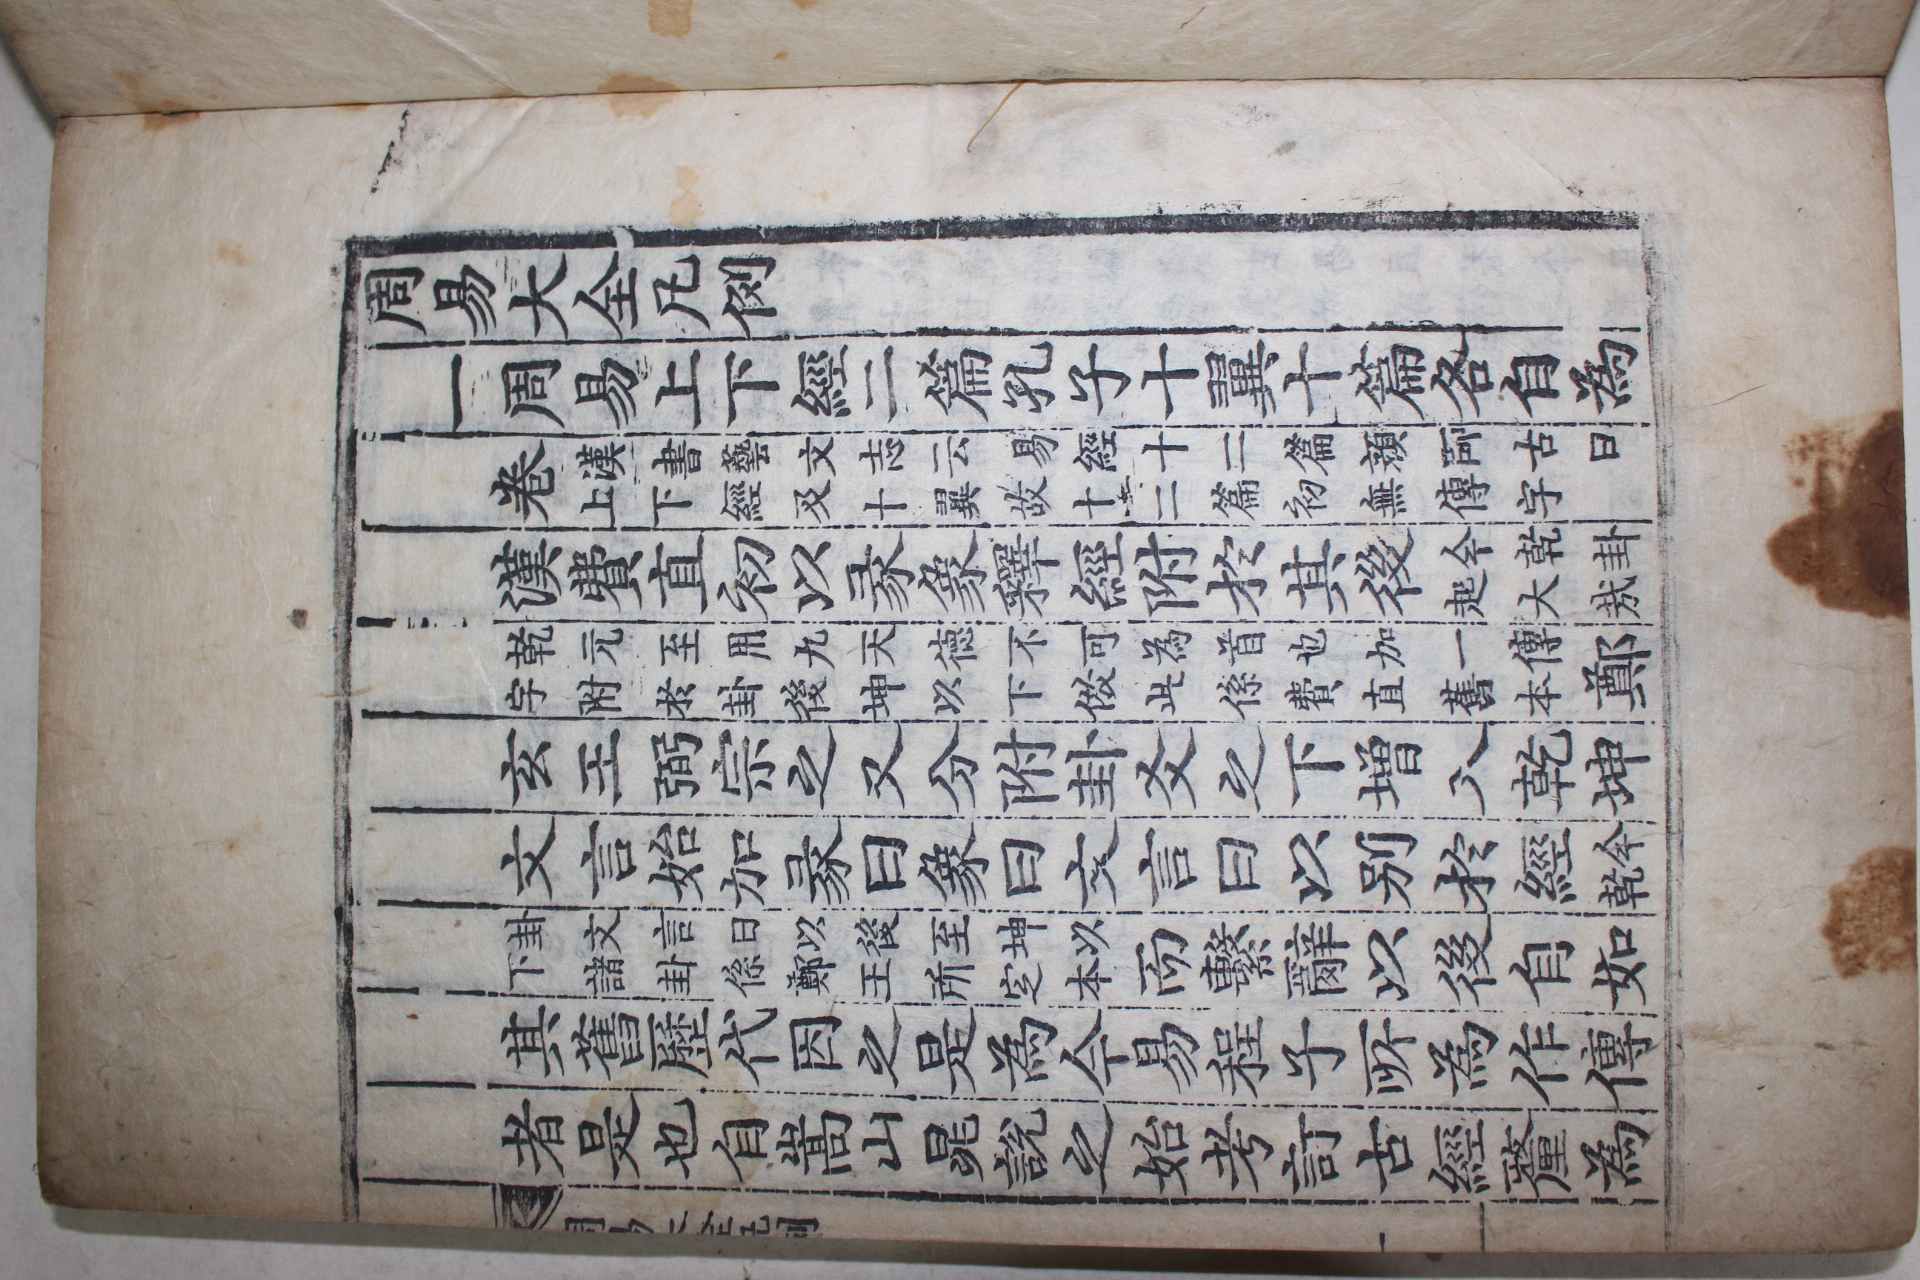 周易大全凡例
一周易上下經二篇孔子十翼十篇各自為
卷漢書藝文志云易經十二篇顔師古曰
上下經及十翼故十二篇初無傳字
漢費直初以彖象釋經附於其後今乾卦
起大哉
乾元至用九天德不可為首也加一傳
字附於卦後坤以下倣此係費直舊本鄭
玄王弼宗之又分附卦爻之下增入乾坤
文言始加彖曰象曰文言曰以别於經今
乾
卦文言曰以後至坤以
下諸卦係鄭王所定本而繫辭以後自如
其舊歷代因之是為今易程子所為作傳
者是也自嵩山晁說之始考訂古經釐為
周易大全凡例